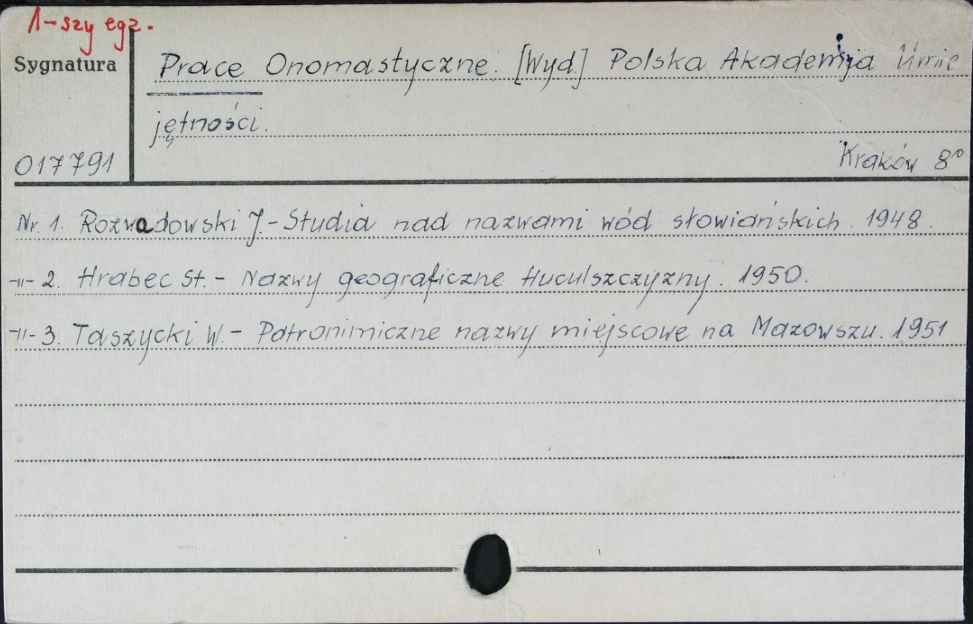 1-szy egz.
Sygnatura
Prace Onomastyczne. [Wyd.] Polska Akademia Umie
jętności.
017791
Kraków 8°
Nr. 1. Rozwadowski J. - Studia nad nazwami wód słowiańskich. 1948.
-"- 2. Hrabec St. - Nazwy geograficzne Huculszczyzny. 1950.
-"- 3. Taszycki W. - Patronimiczne nazwy miejscowe na Mazowszu. 1951